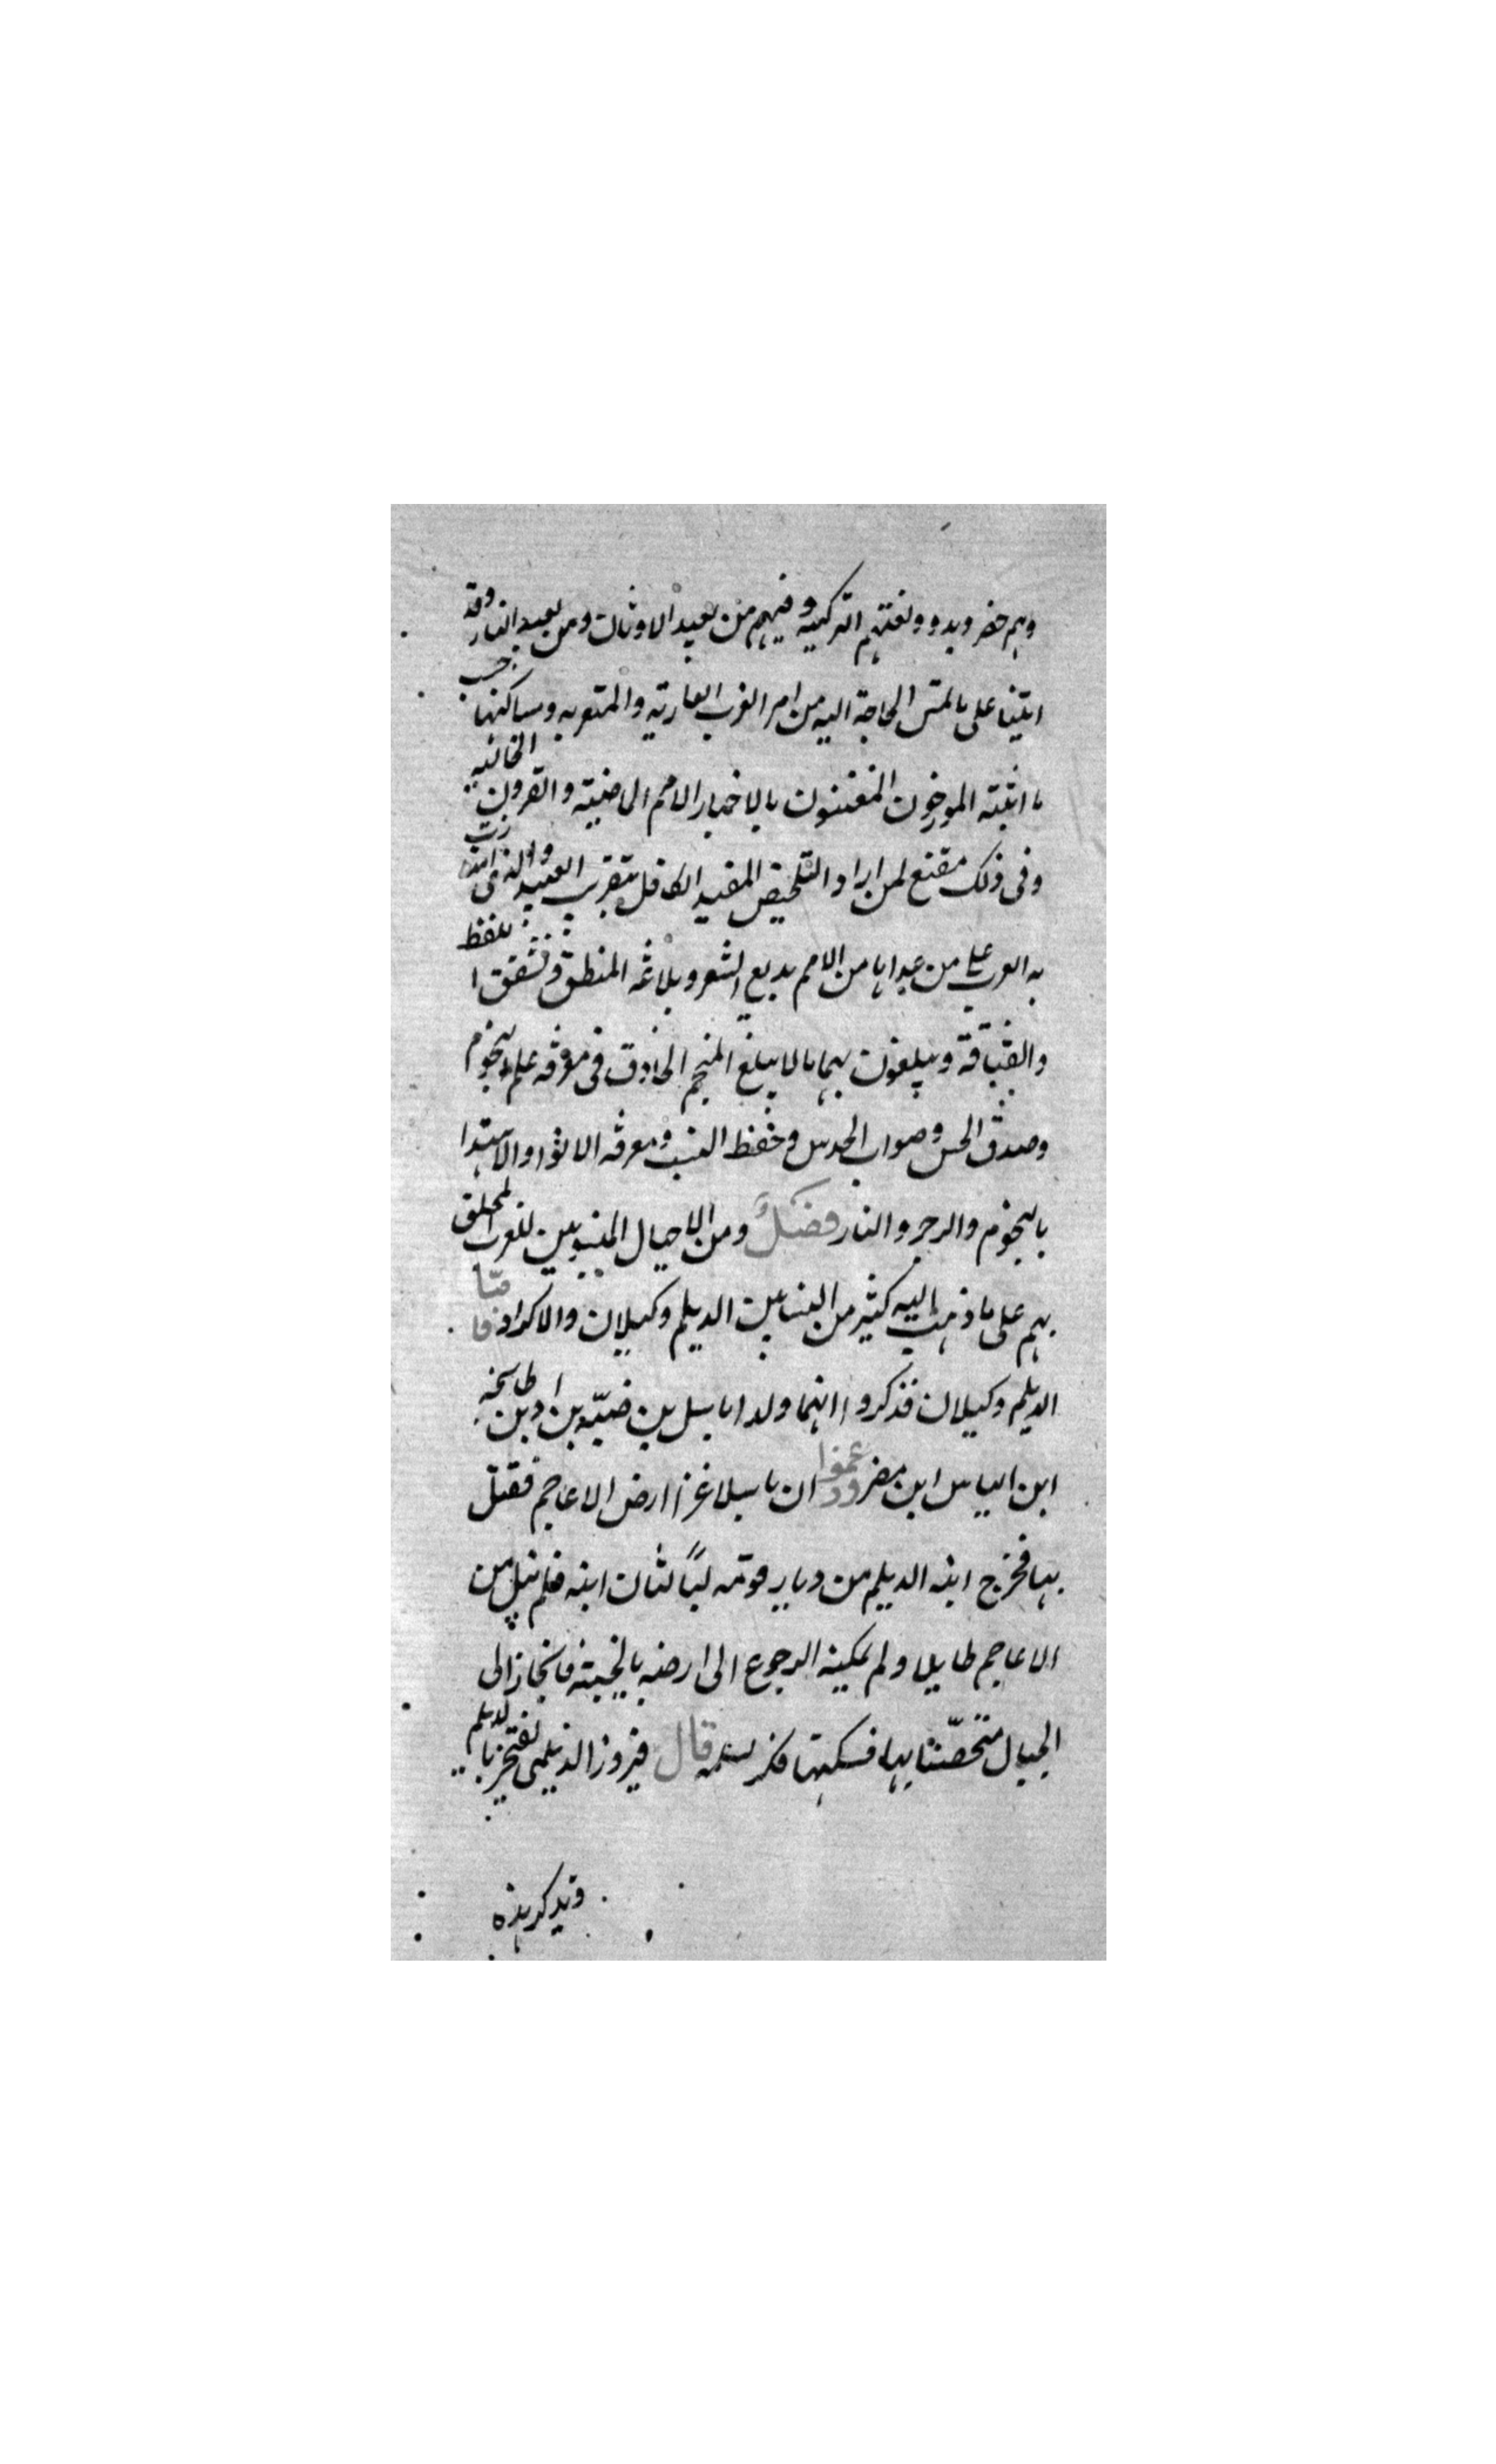 وهم حضر وبدو ولغتهم التركية وفيهم من يعبد الاوثان ومن يعبد النار وقد
اتينا على ما لمتس الحاجة اليه من امر العرب العاربة والمتعربه ومساكنها حسب
ما اثبته المورخون المفتنون بالاخبار الامم الماضية والقرون الخالية
وفى ذلك مقنع لمن اراد التلخيص المفيد الكافل بتقريب البعيد والذى امتازت
به العرب على من عداها من الامم بديع الشعر وبلاغة المنطق وتشقق اللفظ
والقيافة ويبلغون بهما ما لا يبلغ المنجم الحاذق فى معرفة علم النجوم
وصدق الحس وصواب الحدس وحفظ النسب ومعرفه الانوا والاهتدا
بالنجوم والزجر والنار فصل ومن الاجيال المنسوبين للعرب الملحق
بهم على ما ذهب اليه كثير من النسابين الديلم وكيلان والاكراد فاما
الديلم وكيلان فذكروا انهما ولدا باسل بن ضبّه بن اد بن طابخه
ابن الياس ابن مضر وزعموا ان باسلا غزا ارض الاعاجم فقتل
بها فخرج ابنه الديلم من ديار قومه لبًا لثان ابنه فلم ينل من
الاعاجم طايلا ولم يمكنه الرجوع الى ارضه بالخيبة فانحاز الى
الجبال متحصّنا بها فسكنها فكثر نسله قال فيروز الديلمى يفتخر بالديلم
ويذكر هذه